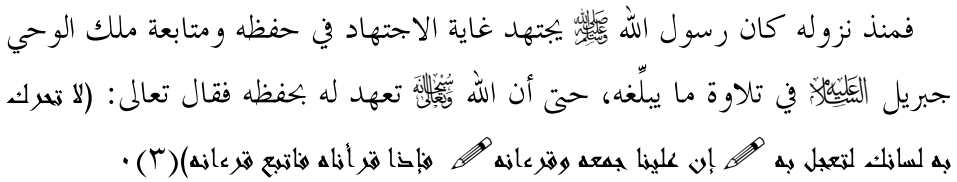 فمنذ نزوله كان رسول الله ﷺ يجتهد غاية الاجتهاد في حفظه ومتابعة ملك الوحي
جبريل عليه السلام في تلاوة ما يبلِّغه، حتى أن الله سبحانه وتعالى تعهد له بحفظه فقال تعالى: (لا تحرك
به لسانك لتعجل به ✏ إن علينا جمعه وقرءانه ✏ فإذا قرأناه فاتبع قرءانه)(٣).